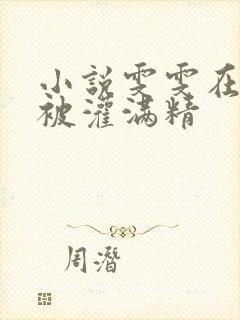 小說雯雯在
被灌满精
周潛